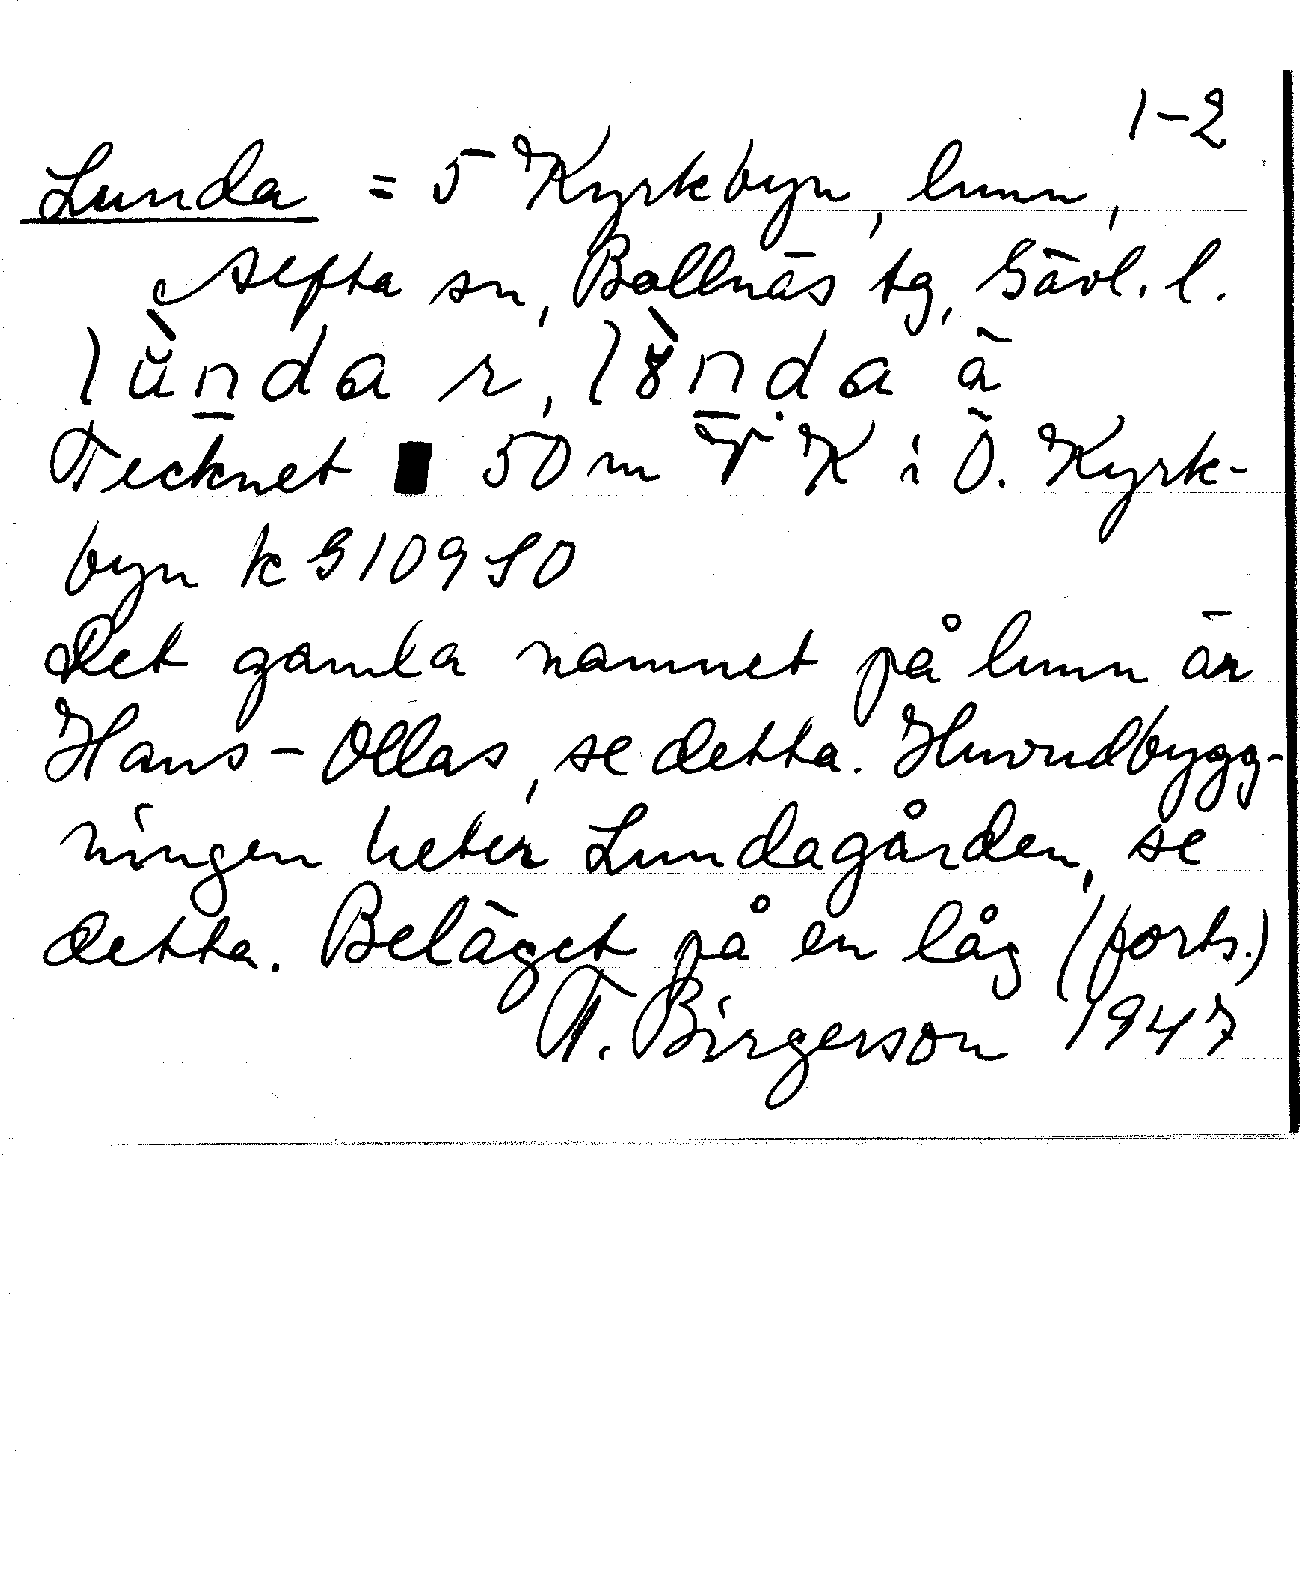 1-2
Lunda = 5 Kyrkbyn, lmn,
Alfta sn, Bollnäs tg, Gävl. l.
Tecknet ■ 50 m V K i Ö. Kyrk-
byn k G 10980
Det gamla namnet på lmn är
Hans-Ollas, se detta. Huvudbygg-
ningen heter Lundagården, se
detta. Beläget på en låg (forts.)
T. Birgerson 1947